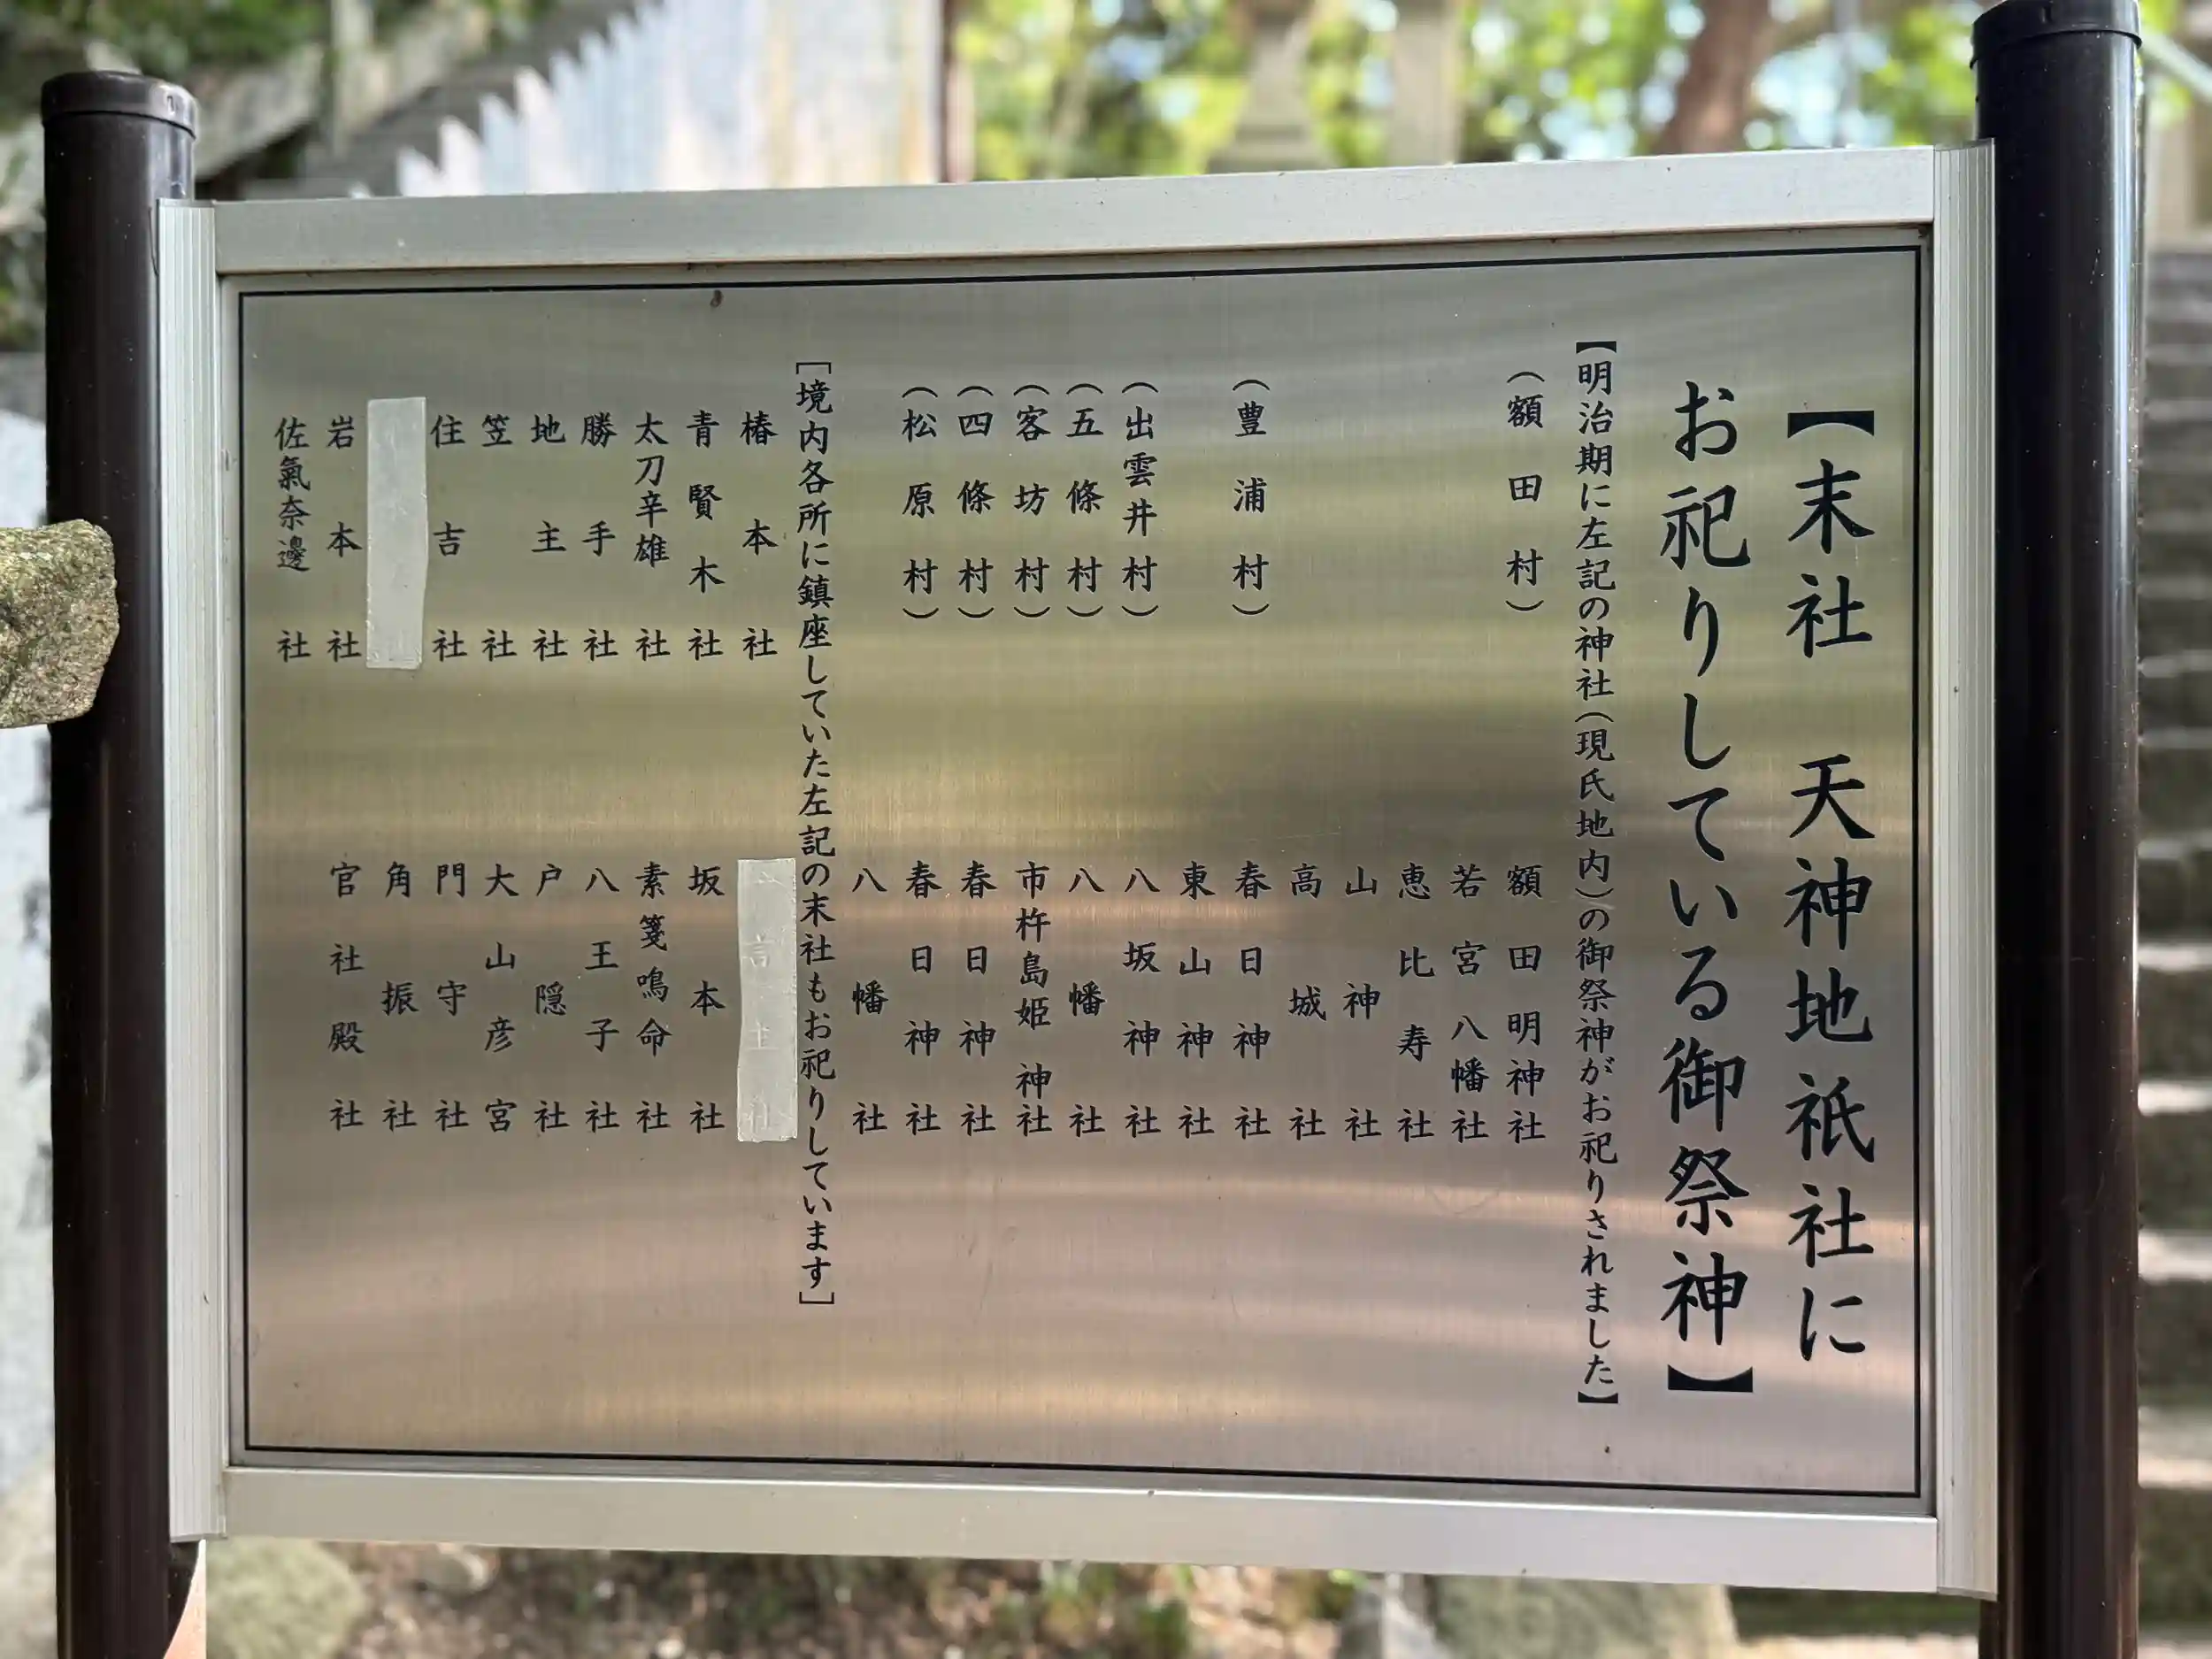 【末社　天神地祇社に
お祀りしている御祭神】
【明治期に左記の神社(現氏地内)の御祭神がお祀りされました】
(額田村)　額田明神社
若宮八幡社
恵比寿社
山神社
高城社
(豊浦村)　春日神社
東山神社
(出雲井村)　八坂神社
(五條村)　八幡社
(客坊村)　市杵島姫神社
(四條村)　春日神社
(松原村)　春日神社
八幡社
[境内各所に鎮座していた左記の末社もお祀りしています]
椿本社
青賢木社　坂本社
太刀辛雄社　素箋鳴命社
勝手社　八王子社
地主社　戸隠社
笠社　大山彦宮
住吉社　門守社
角振社
岩本社　官社殿社
佐氣奈邊社